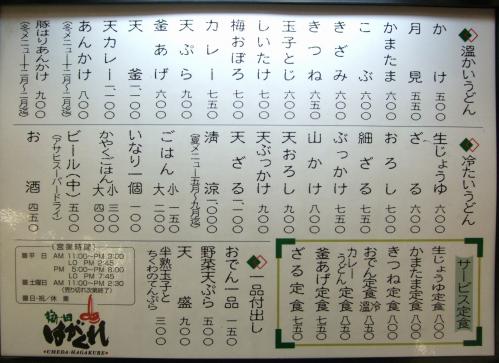 温かいうどん
かけ 五五〇
月見 六五〇
かまたま 六〇〇
こぶ 六〇〇
きざみ 六〇〇
きつね 六五〇
玉子とじ 六〇〇
しいたけ 七〇〇
梅おぼろ 七〇〇
カレー 七五〇
天ぷら 七〇〇
釜あげ 六〇〇
天釜 一、二〇〇
天カレー 一、二〇〇
あんかけ 八〇〇
(冬メニュー十二月~二月迄)
豚ばりあんかけ 九〇〇
(冬メニュー十二月~二月迄)
冷たいうどん
生じょうゆ 六〇〇
ざる 六〇〇
おろし 七〇〇
細ざる 七五〇
ぶっかけ 七五〇
山かけ 八〇〇
天おろし 九〇〇
天ぶっかけ 九〇〇
天ざる 一、二〇〇
清涼 一、〇〇〇
(夏メニュー五月~九月迄)
ごはん 小 一五〇
大 二〇〇
いなり一個 一〇〇
かやくごはん 小 三〇〇
大 四〇〇
ビール(中) 五五〇
(アサヒスーパードライ)
お酒 四五〇
サービス定食
生じょうゆ定食 八〇〇
かまたま定食 八〇〇
きつね定食 八〇〇
おでん定食 温 冷
カレーうどん定食
釜あげ定食 七五〇
ざる定食 七五〇
一品付出し
おでん一品 一五〇
野菜天ぷら 五〇〇
天盛 九〇〇
半熟玉子と
ちくわのてんぷら 三〇〇
(営業時間)
■平日 AM 11:00~PM 3:00
LO PM 2:45
PM 5:00~PM 8:00
LO PM 7:45
■土曜日 AM 11:00~PM 2:30
(売り切れ次第終了)
■日・祝/休業
梅田
はがくれ
UMEDA-HAGAKURE